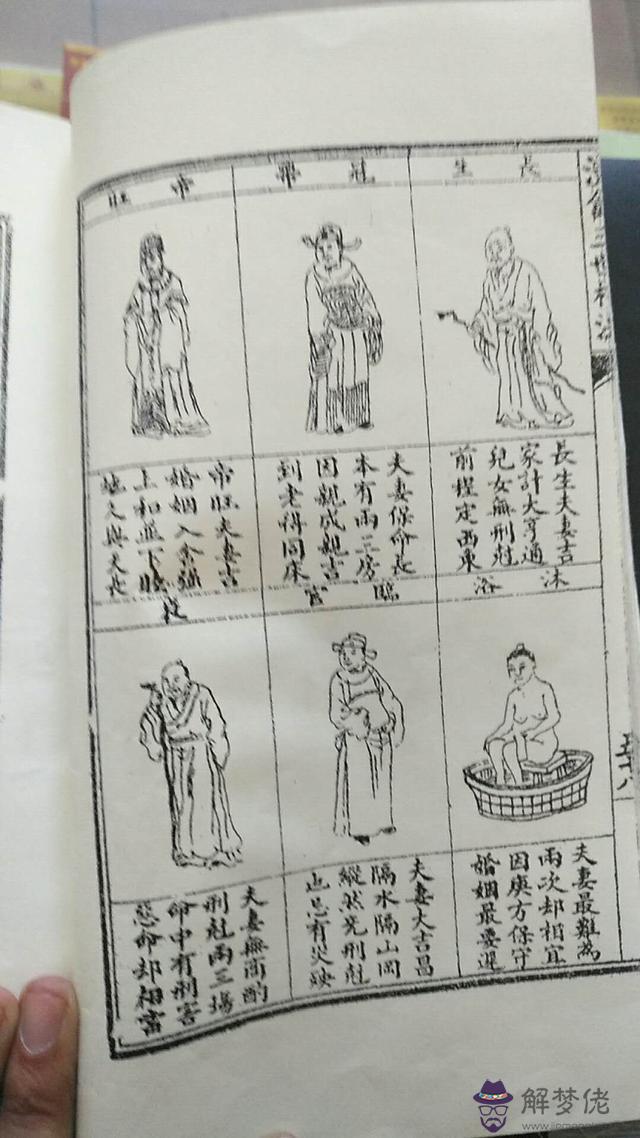 長生
長生夫妻吉
家計大亨通
兒女無刑尅
前程定西東
冠帶
夫妻保命長
本有兩三房
因親成親吉
到老得同床
帝旺
帝旺夫妻吉
婚姻入余強
上和並下睦
地久與天長
沐浴
夫妻最難為
兩次却相宜
因庚方保守
婚姻最要遲
臨官
夫妻大吉昌
隔水隔山岡
縱然克刑尅
也忌有災殃
衰
夫妻無商酌
刑尅兩三場
命中有刑害
惡命却相當
五十八
解梦佬